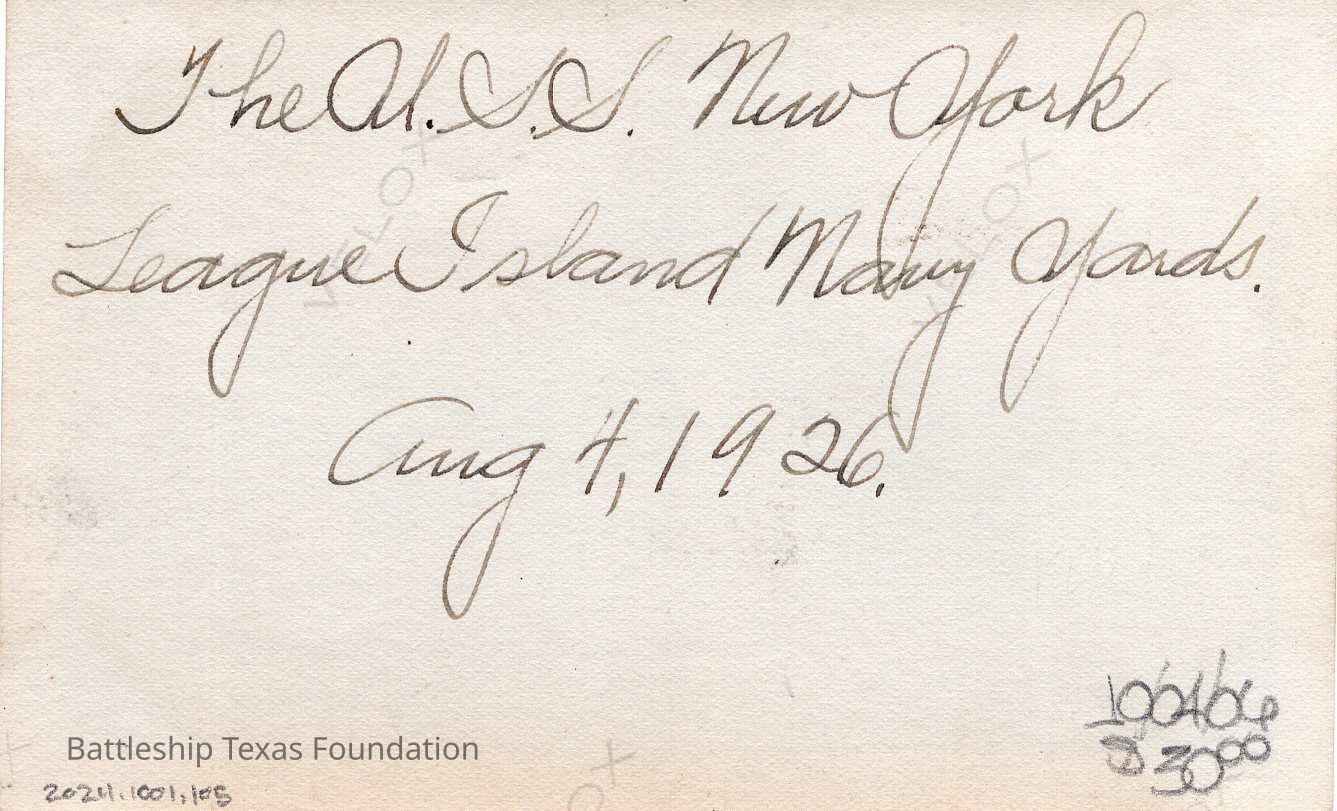 The U.S.S. New York
League Island Navy Yards.
Aug 4, 1926.
Battleship Texas Foundation
$3000
2024.1001.105